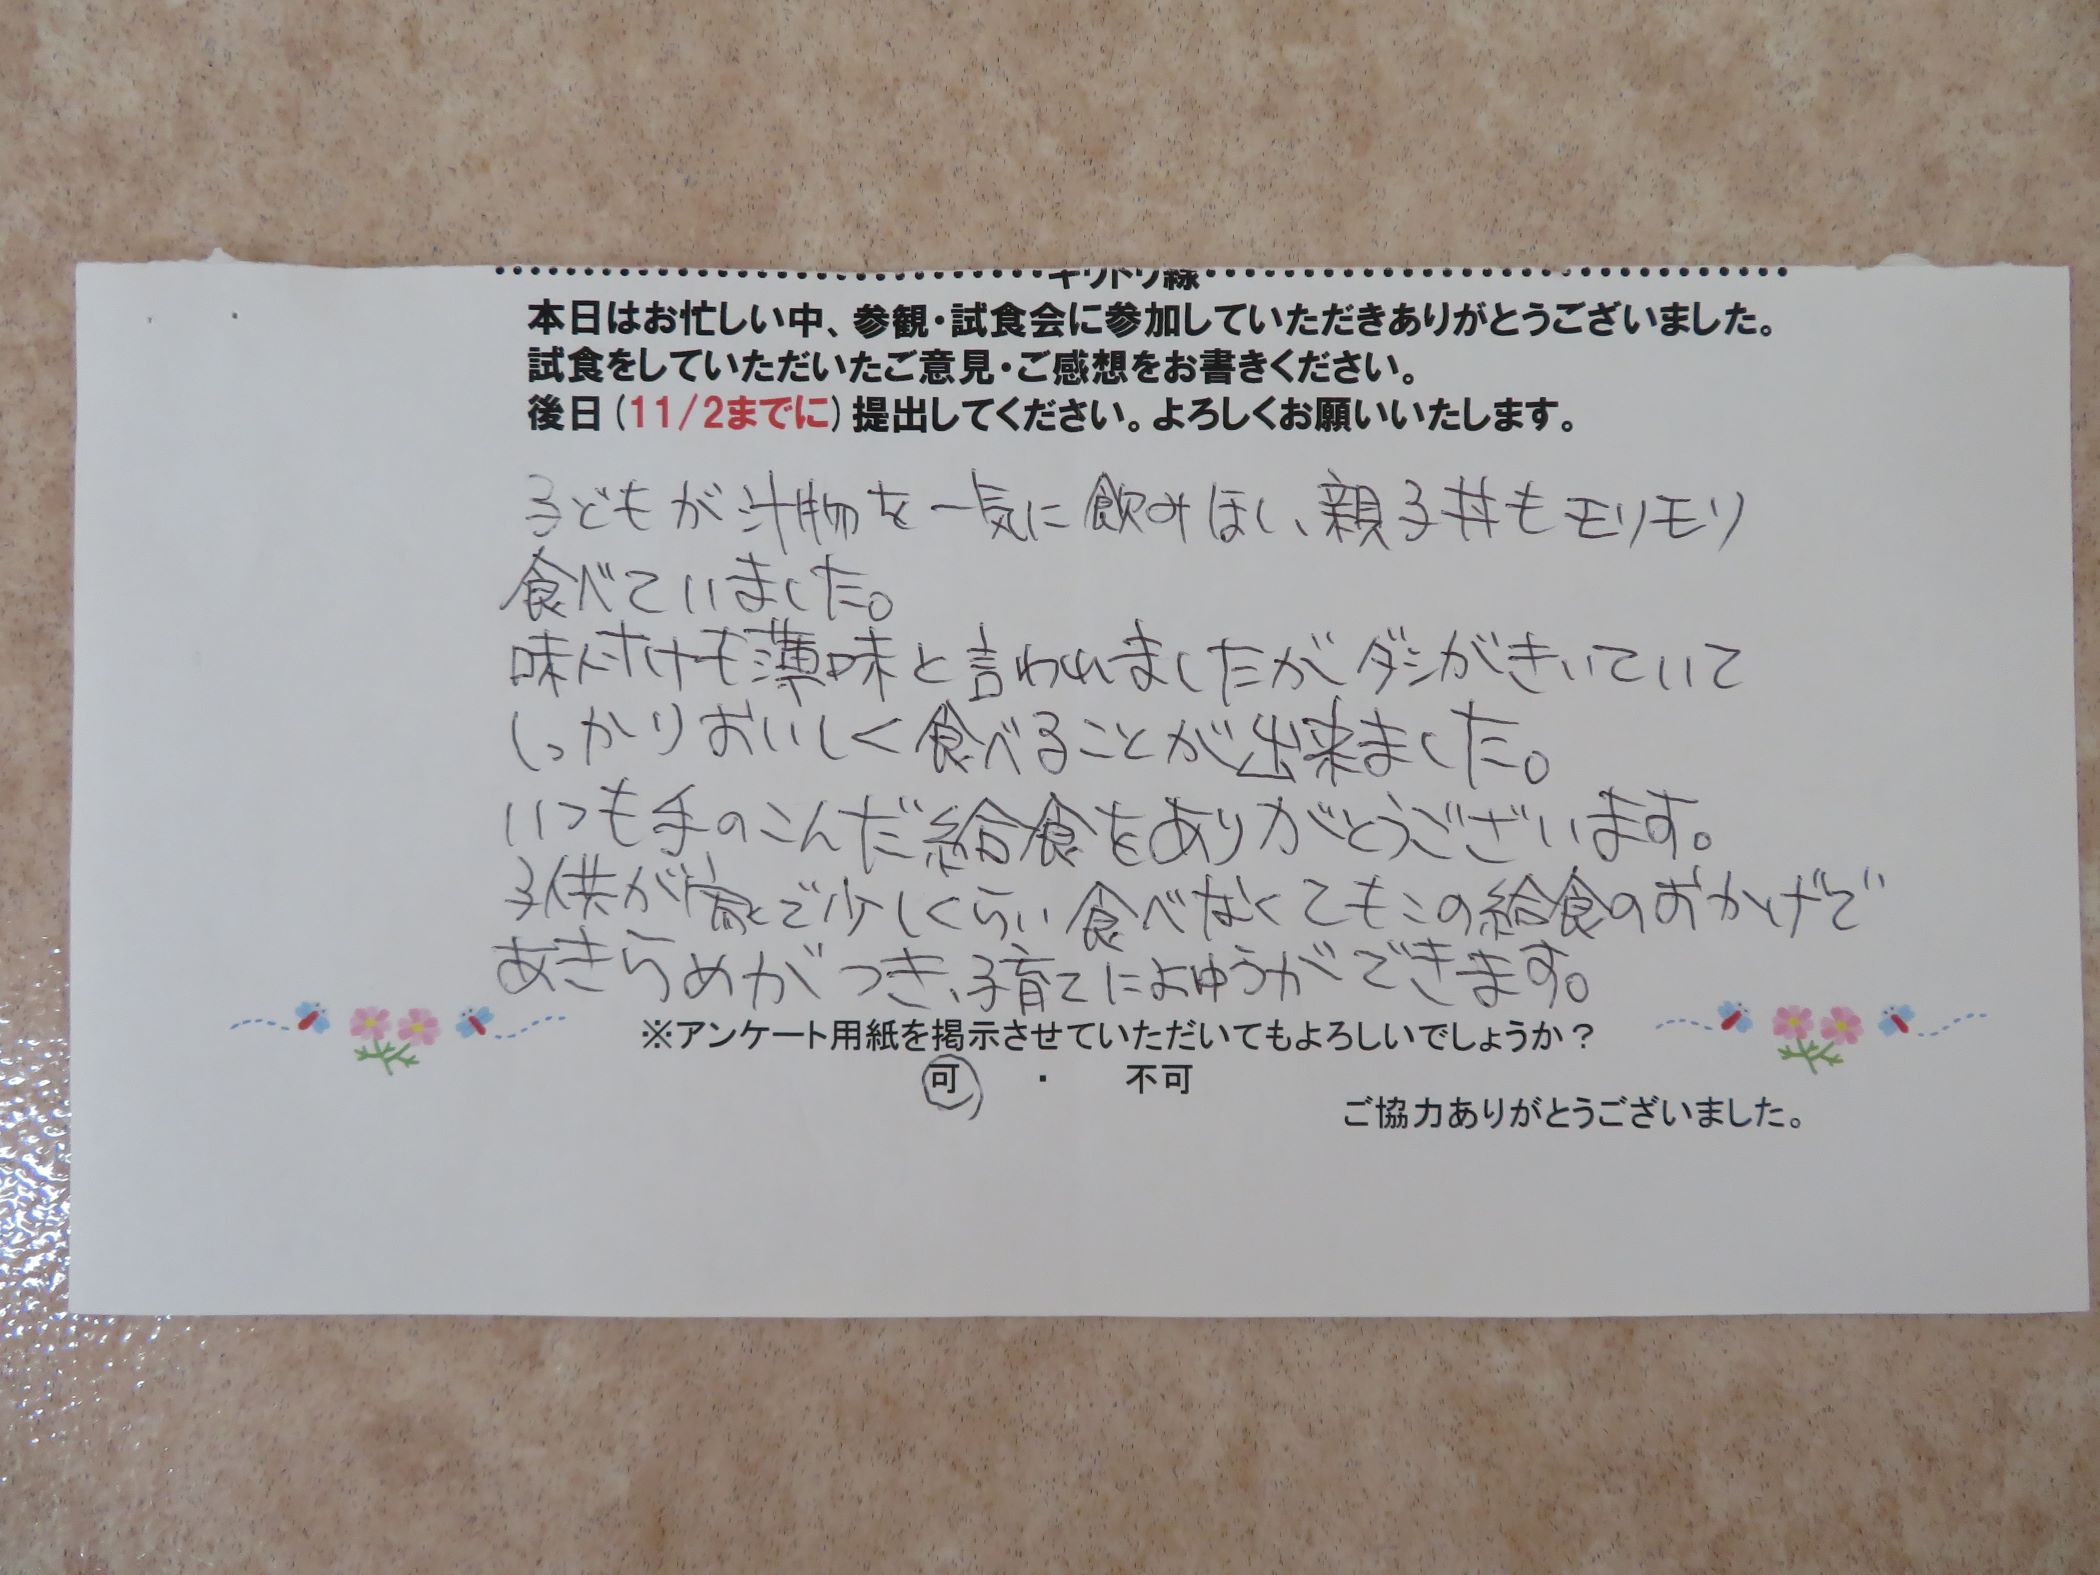 キリトリ線
本日はお忙しい中、参観・試食会に参加していただきありがとうございました。
試食をしていただいたご意見・ご感想をお書きください。
後日(11/2までに)提出してください。よろしくお願いいたします。
子どもが汁物を一気に飲みほし、親子丼もモリモリ
食べていました。
味付けも薄味と言われましたがダシがきいていて
しっかりおいしく食べることが出来ました。
いつも手のこんだ給食をありがとうございます。
子供が家で少しくらい食べなくてもこの給食のおかげで
あきらめがつき、子育てによゆうができます。
※アンケート用紙を掲示させていただいてもよろしいでしょうか？
可 ・ 不可
ご協力ありがとうございました。